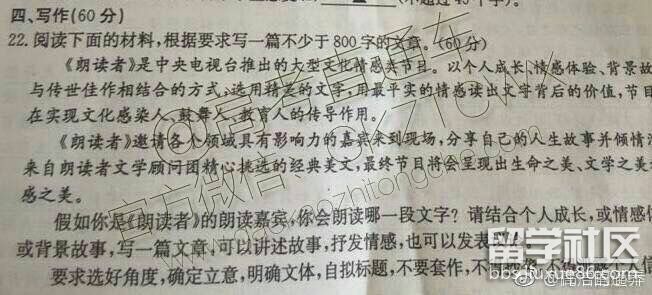 四、写作(60分)
22. 阅读下面的材料,根据要求写一篇不少于800字的文章。(60分)
《朗读者》是中央电视台推出的大型文化情感类节目。以个人成长、情感体验、背景故
与传世佳作相结合的方式,选用精美的文字,用最平实的情感读出文字背后的价值,节目
在实现文化感染人、鼓舞人、教育人的传导作用。
《朗读者》邀请各个领域具有影响力的嘉宾来到现场,分享自己的人生故事并倾情
来自朗读者文学顾问团精心挑选的经典美文,最终节目将会呈现出生命之美、文学之美
感之美。
假如你是《朗读者》的朗读嘉宾,你会朗读哪一段文字?请结合个人成长,或情感
或背景故事,写一篇文章,可以讲述故事,抒发情感,也可以发表
要求选好角度,确定立意,明确文体,自拟标题,不要套作,不
留学社区
bbs.liuxue86.com